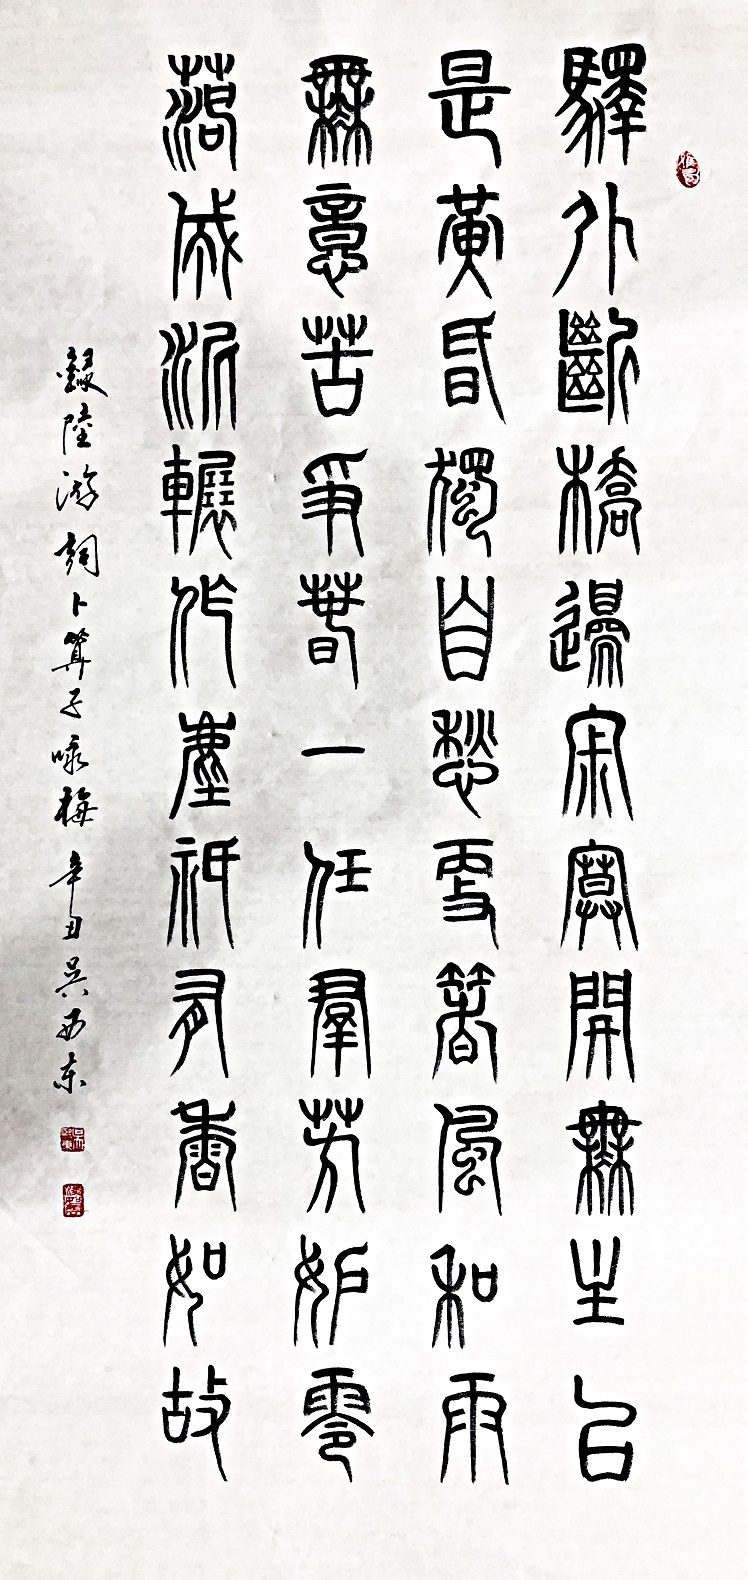 驛外斷橋邊寂寞開無主已
是黃昏獨自愁更箸風和雨
無意苦爭春一任羣芳妒零
落成泥輾作塵祇有香如故
錄陸游詞卜算子咏梅 辛丑吳西东